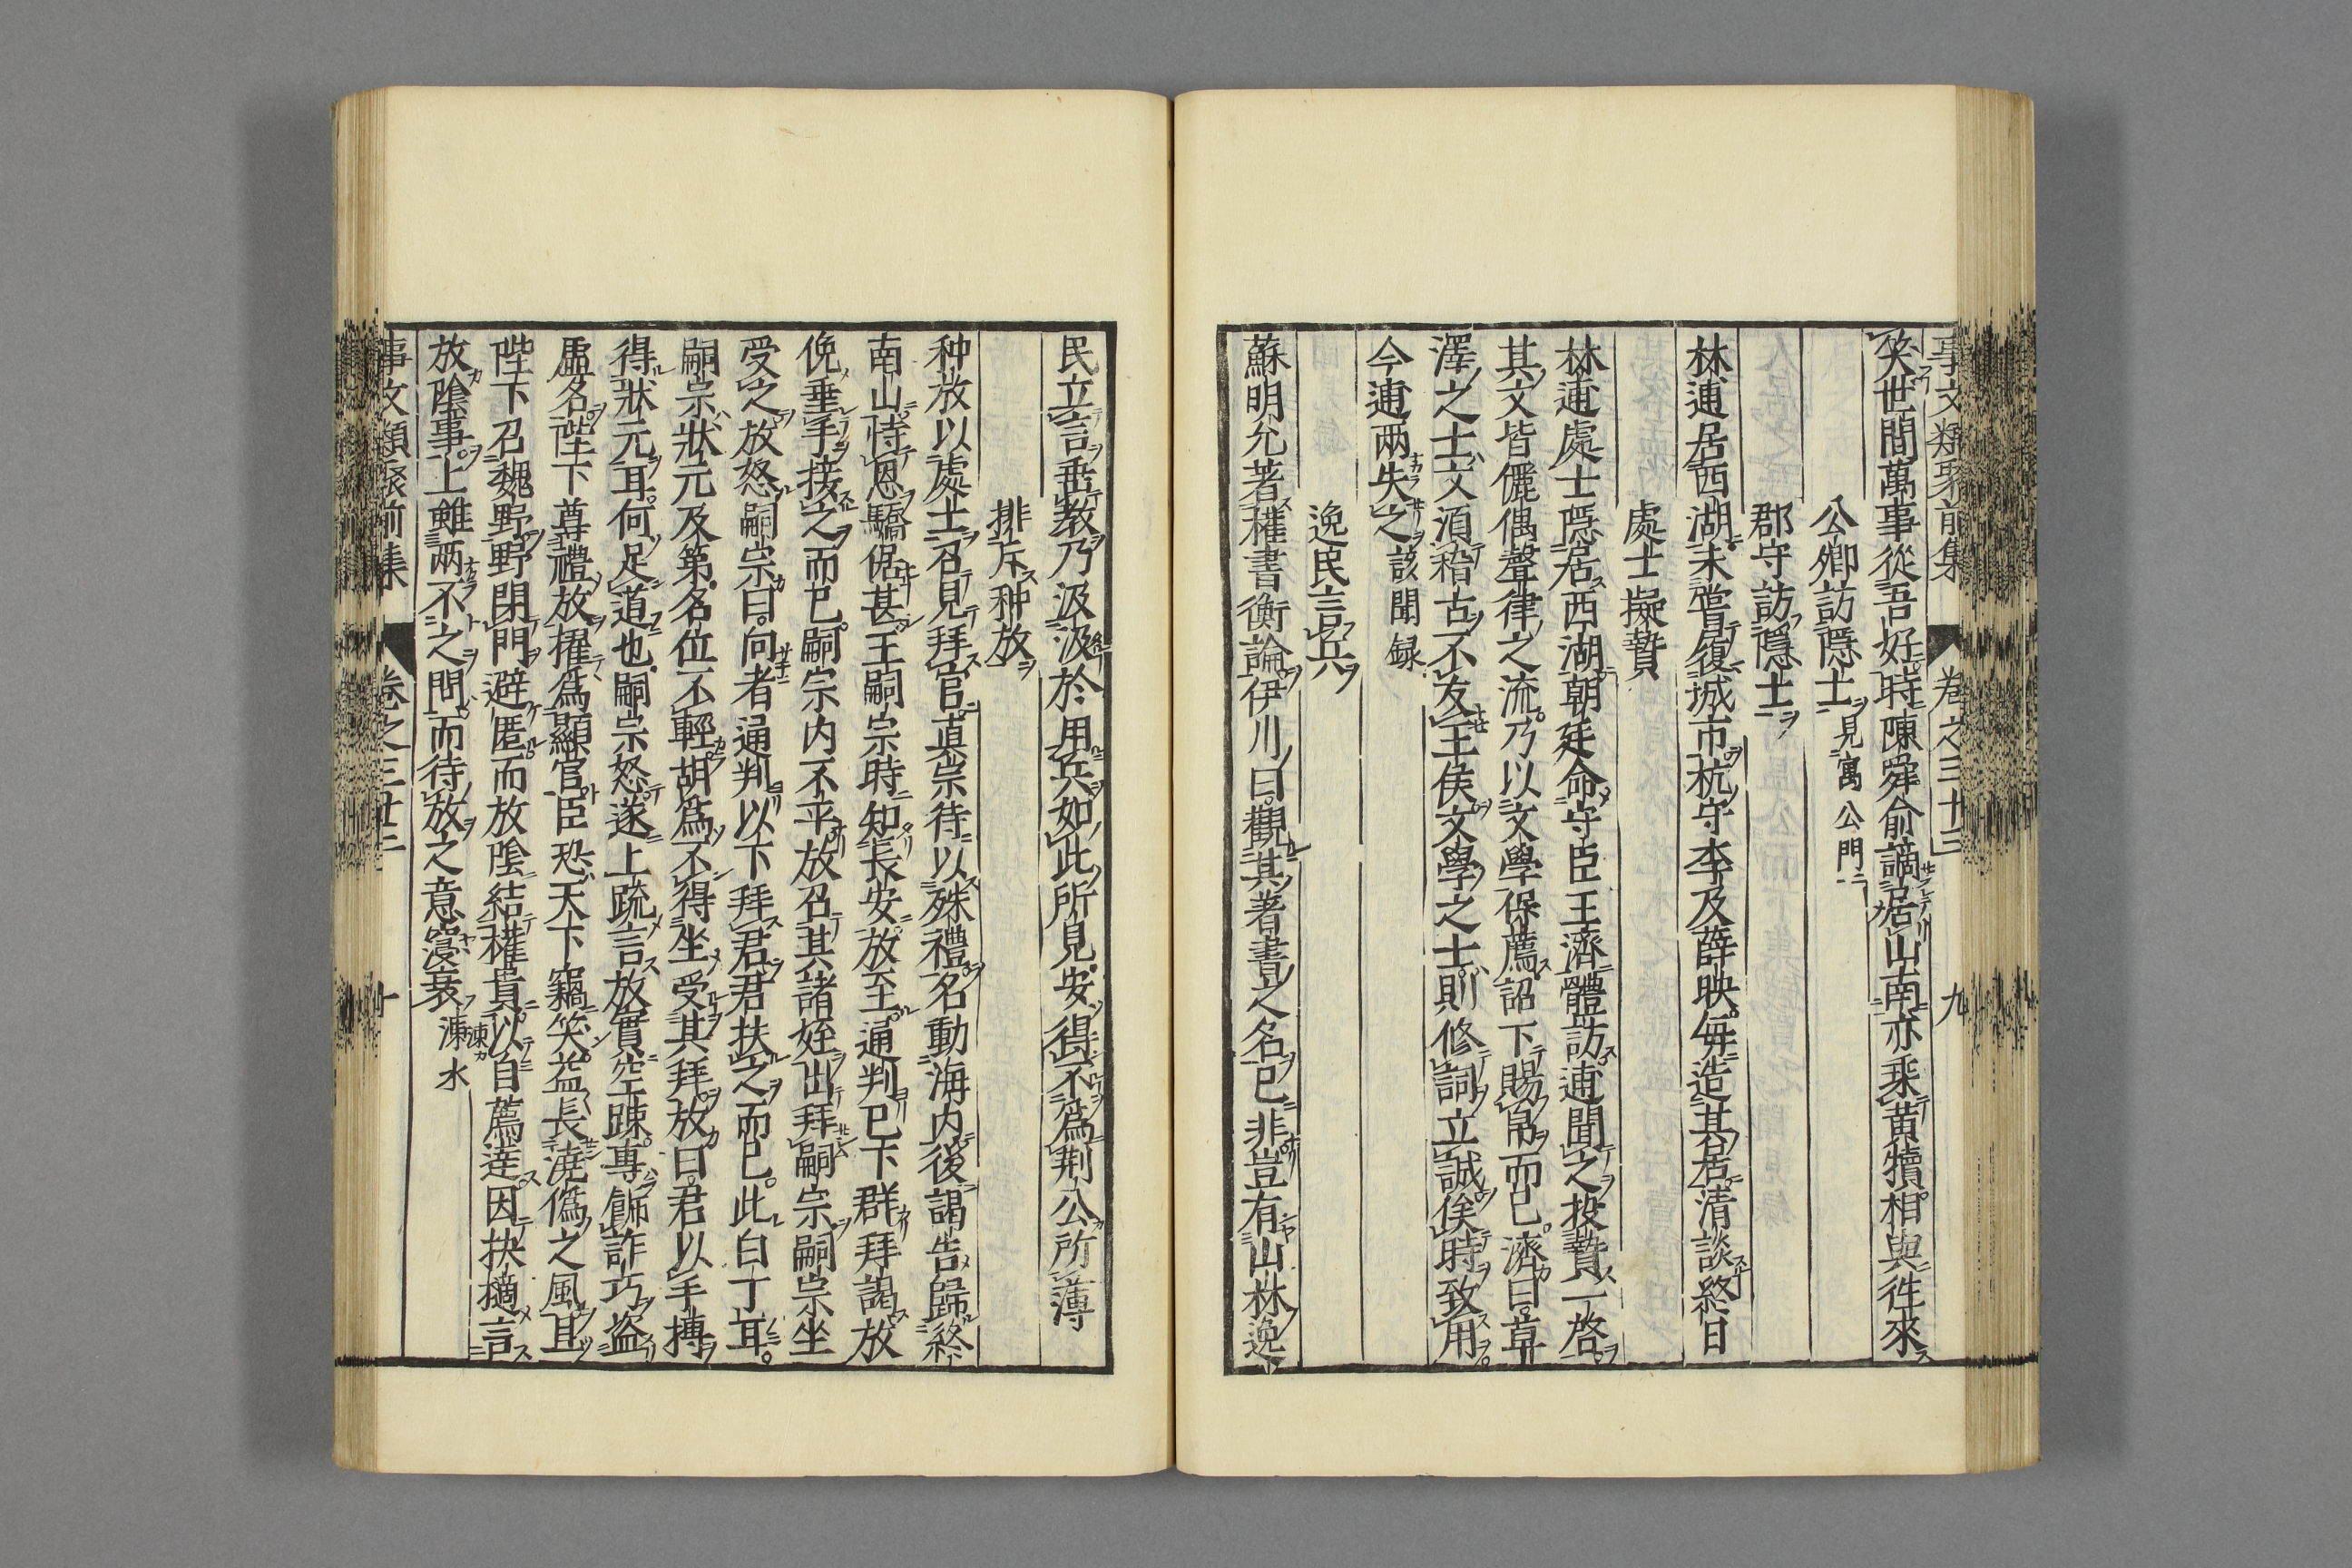 事文類聚前集 卷之三十三 九
笑世間萬事從吾好時陳舜俞謫居山南亦乘黃犢相與徃來
公卿訪隱士見寓公門
郡守訪隱士
林逋居西湖未嘗履城市杭守李及薛映每造其居清談終日
處士擬贄
林逋處士隱居西湖朝廷命守臣王濟體訪逋聞之投贄一啓
其文皆儷偶聲律之流乃以文學保薦詔下賜帛而已濟曰草
澤之士文須稽古不友王侯文學之士則修詞立誠俟時致用
今逋两失之該聞録
逸民言兵
蘇明允著權書衡論伊川曰觀其著書之名已非豈有山林逸
民立言垂教乃汲汲於用兵如此所見安得不爲荆公所薄
排斥种放
种放以處士召見拜官真宗待以殊禮名動海内後謁告歸終
南山恃恩驕倨甚王嗣宗時知長安放至通判已下群拜謁放
俛垂手接之而已嗣宗内不平放召其諸姪出拜嗣宗嗣宗坐
受之放怒嗣宗曰向者通判以下拜君君扶之而已此白丁耳
嗣宗狀元及第名位不輕胡爲不得坐受其拜放曰君以手搏
得狀元耳何足道也嗣宗怒遂上疏言放實空踈專飾詐巧盗
虚名陛下尊禮放擢爲顯官臣恐天下竊笑益長澆僞之風且
陛下召魏野野閉門避匿而放陰結權貴以自薦達因抉擿言
放陰事上雖两不之問而待放之意寖衰涑水
事文類聚前集 卷之三十三 十